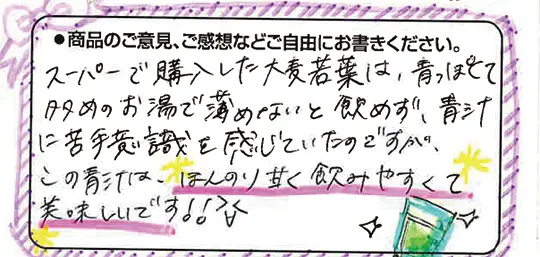 ●商品のご意見、ご感想などご自由にお書きください。
スーパーで購入した大麦若葉は、青っぽくて
多めのお湯で薄めないと飲めず、青汁
に苦手意識を感じていたのですが、
この青汁は、ほんのり甘く飲みやすくて
美味しいです!!